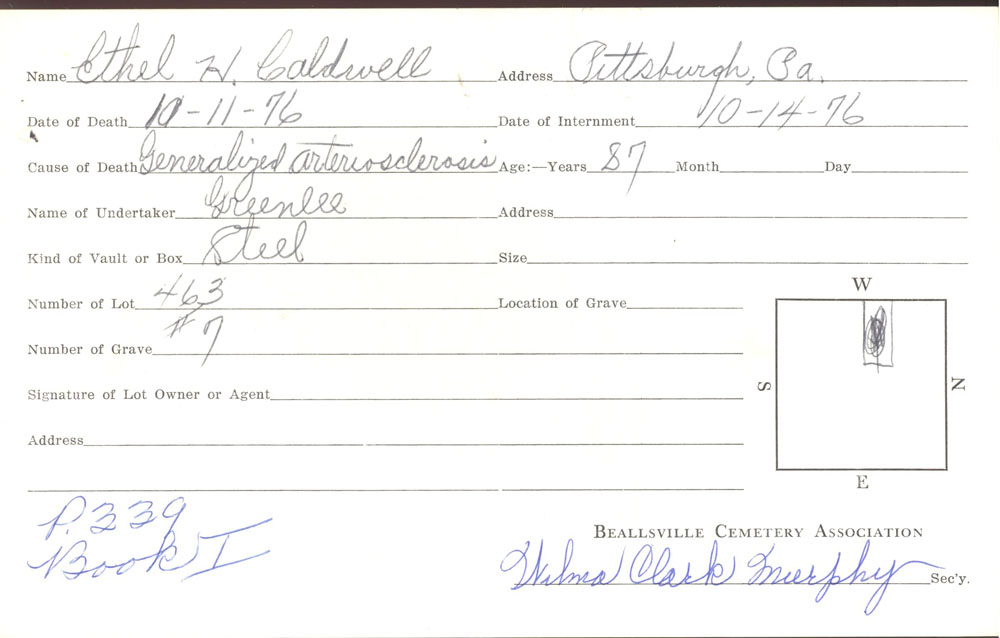 Name Ethel H. Caldwell Address Pittsburgh, Pa.
Date of Death 10-11-76 Date of Internment 10-14-76
Cause of Death Generalized arteriosclerosis Age:—Years 87 Month Day
Name of Undertaker Greenlee Address
Kind of Vault or Box Steel Size
W
Number of Lot 463 Location of Grave
Number of Grave #7
S N
Signature of Lot Owner or Agent
Address
E
P. 339
Book I
BEALLSVILLE CEMETERY ASSOCIATION
Wilma Clark Murphy Sec'y.